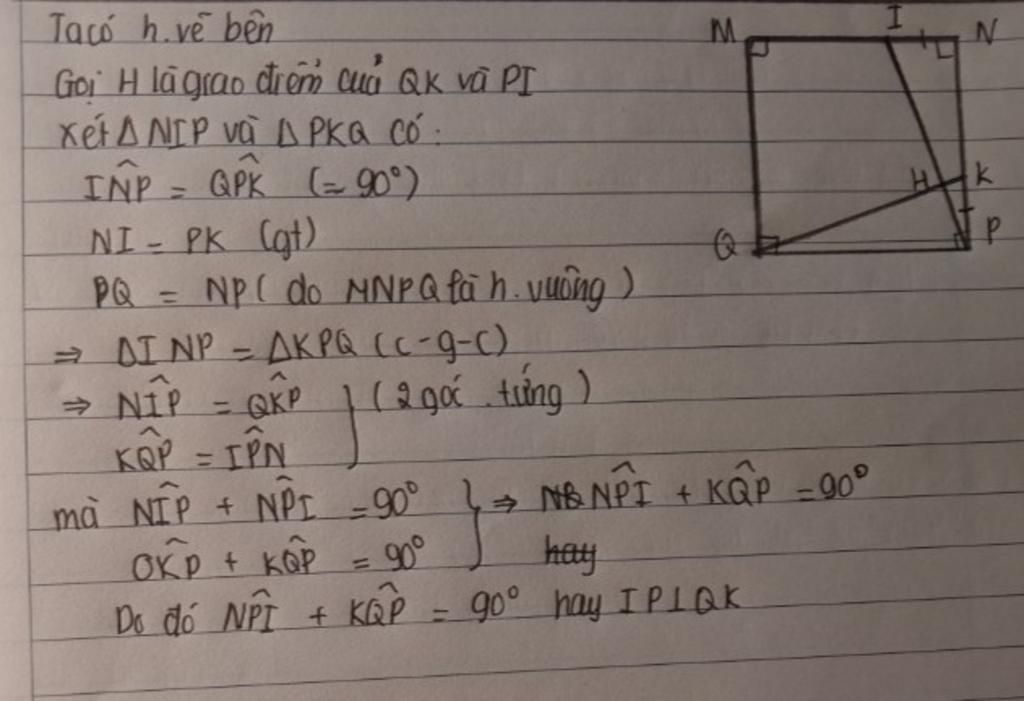 Ta có h.vẽ bên
Gọi H là giao điểm cuả QK và PI
xét Δ NIP và Δ PKQ có:
IN̂P = QP̂K (= 90°)
NI = PK (gt)
PQ = NP ( do MNPQ là h. vuông )
⇒ ΔINP = ΔKPQ (c-g-c)
⇒ NÎP = QK̂P } (2 góc .tứng )
KQ̂P = IP̂N
mà NÎP + NP̂I = 90° } ⇒ NP̂I + KQ̂P = 90°
QK̂P + KQ̂P = 90° hay
Do đó NP̂I + KQ̂P = 90° hay IP⊥QK
M I N
H K
Q P